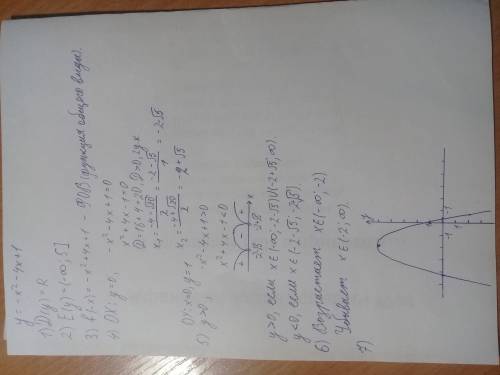 y = -x² - 4x + 1
1) D(y) = R
2) E(y) = (-∞, 5]
3) f(-x) = -x² + 4x + 1 - ФОВ (функция общего вида).
4) OX: y = 0, -x² - 4x + 1 = 0
x² + 4x - 1 = 0
D = 16 + 4 = 20, D > 0, 2 g x
x₁ = (-4 - √20)/2 = (-2 - √5)/1 = -2 - √5
x₂ = (-4 + √20)/2 = -2 + √5
OY: x = 0, y = 1
5) y > 0, -x² - 4x + 1 > 0
x² + 4x - 1 < 0
+ - +
-2-√5 -2+√5 x
y > 0, если x ∈ (-∞; -2-√5) ∪ (-2+√5, ∞).
y < 0, если x ∈ (-2-√5; -2+√5).
6) Возрастает x ∈ (-∞; -2)
Убывает x ∈ (-2, ∞).
7)
y
1
-1